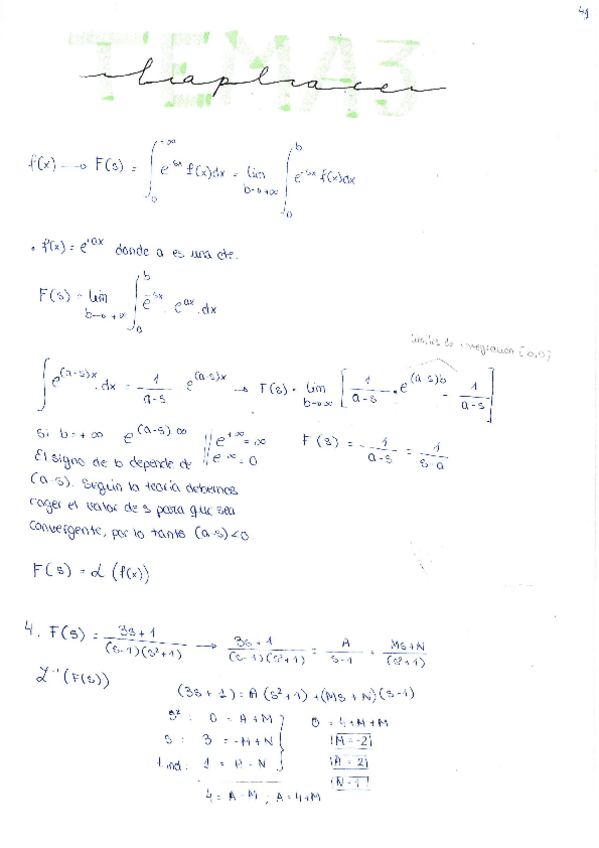 49
TEMA 3
Laplace
f(x) → F(s) = ∫₀^∞ e^-sx f(x)dx = lim b→+∞ ∫₀^b e^-sx f(x)dx
• f(x) = e^ax donde a es una cte.
F(s) = lim b→+∞ ∫₀^b e^-sx · e^ax · dx
límites de integración [0,b]
∫ e^(a-s)x · dx = 1/(a-s) e^(a-s)x → F(s) = lim b→∞ [1/(a-s) · e^(a-s)b - 1/(a-s)]
Si b = +∞ e^(a-s)·∞ || e^+∞ = ∞ F(s) = -1/(a-s) = 1/(s-a)
El signo de b depende de || e^-∞ = 0
(a-s). Según la teoría debemos
coger el valor de s para que sea
convergente, por lo tanto (a-s) < 0.
F(s) = L (f(x))
4. F(s) = (3s+1)/((s-1)(s²+1)) → (3s+1)/((s-1)(s²+1)) = A/(s-1) + (Ms+N)/(s²+1)
L⁻¹(F(s))
(3s+1) = A(s²+1) + (Ms+N)(s-1)
s²: 0 = A+M } 0 = 4+M+M
s: 3 = -M+N } M = -2
t. ind: 1 = A-N } A = 2
N = 1
4 = A-M ; A = 4+M